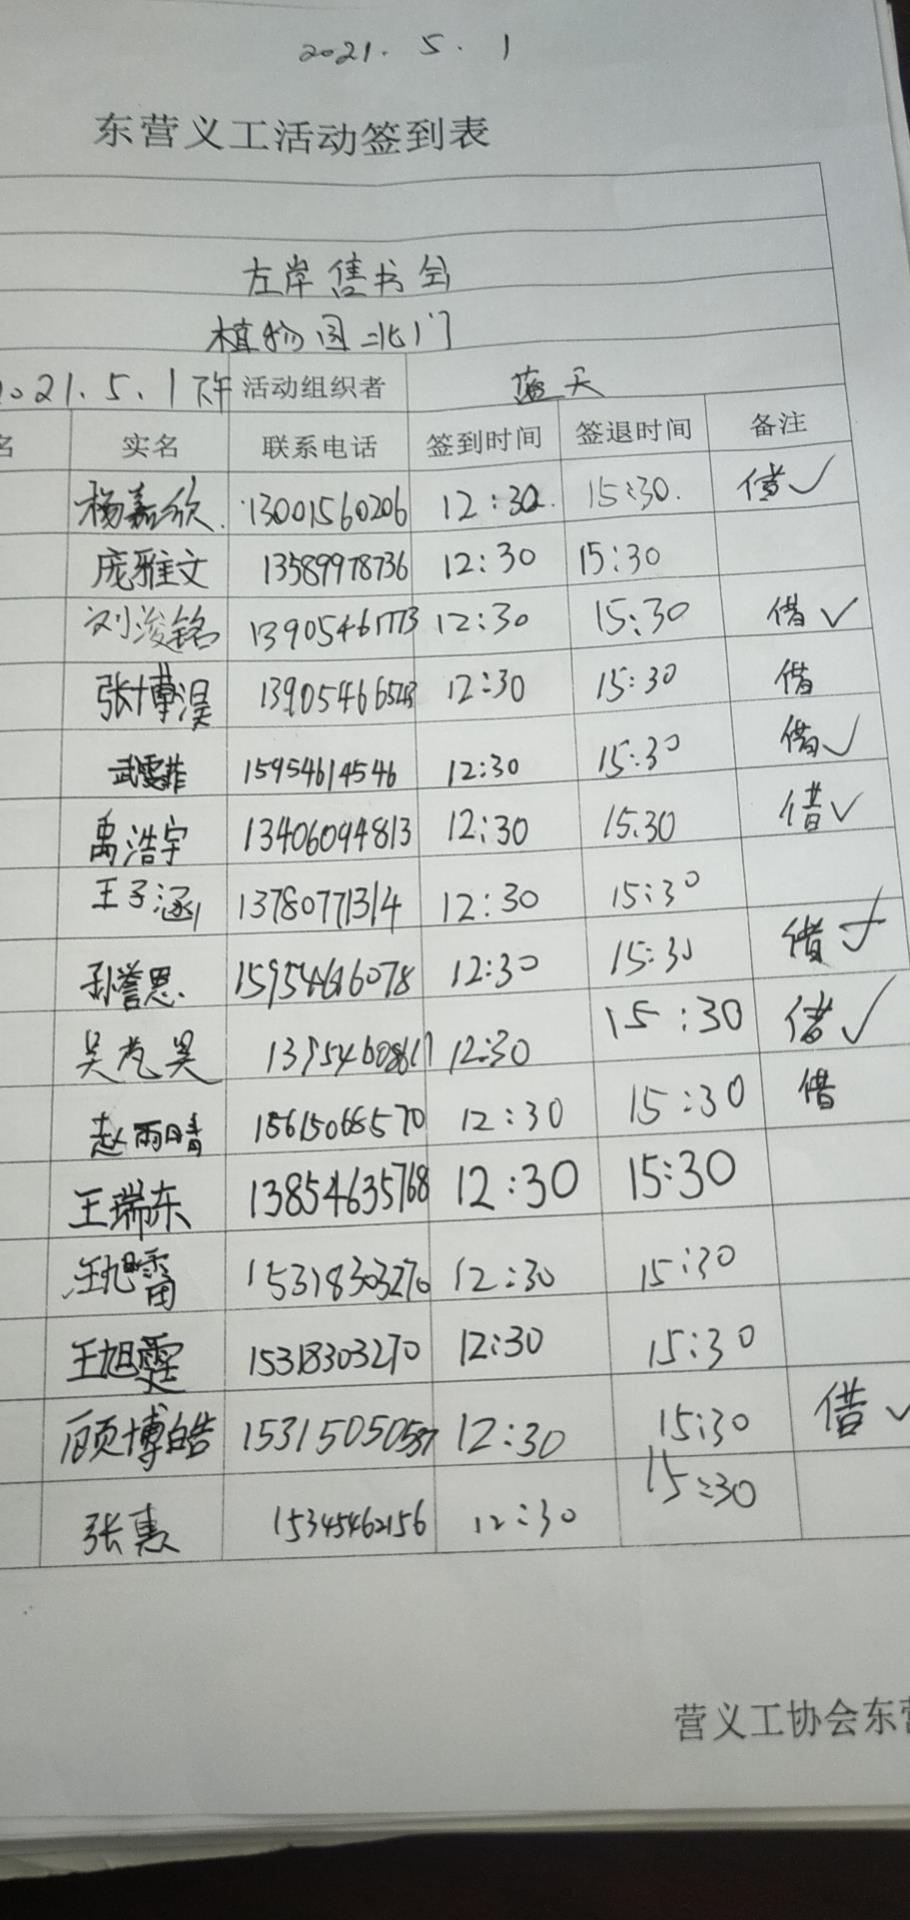 2021. 5. 1
东营义工活动签到表
左岸售书会
植物园北门
2021.5.1下午 活动组织者 蓝天
名 实名 联系电话 签到时间 签退时间 备注
杨嘉欣 13001560206 12:30 15:30 借✓
庞雅文 13589978736 12:30 15:30
刘浚铭 13905461773 12:30 15:30 借✓
张博淏 12:30 15:30 借
武雯菲 15954614546 12:30 15:30 借✓
禹浩宇 13406094813 12:30 15:30 借✓
王子涵 13780771314 12:30 15:30
孙誉恩 12:30 15:30 借✓
吴 昊 12:30 15:30 借✓
赵雨晴 15615068570 12:30 15:30 借
王瑞东 13854635768 12:30 15:30
15318303270 12:30 15:30
王旭霆 15318303270 12:30 15:30
顾博皓 12:30 15:30 借✓
张惠 15345462156 12:30 15:30
营义工协会东营